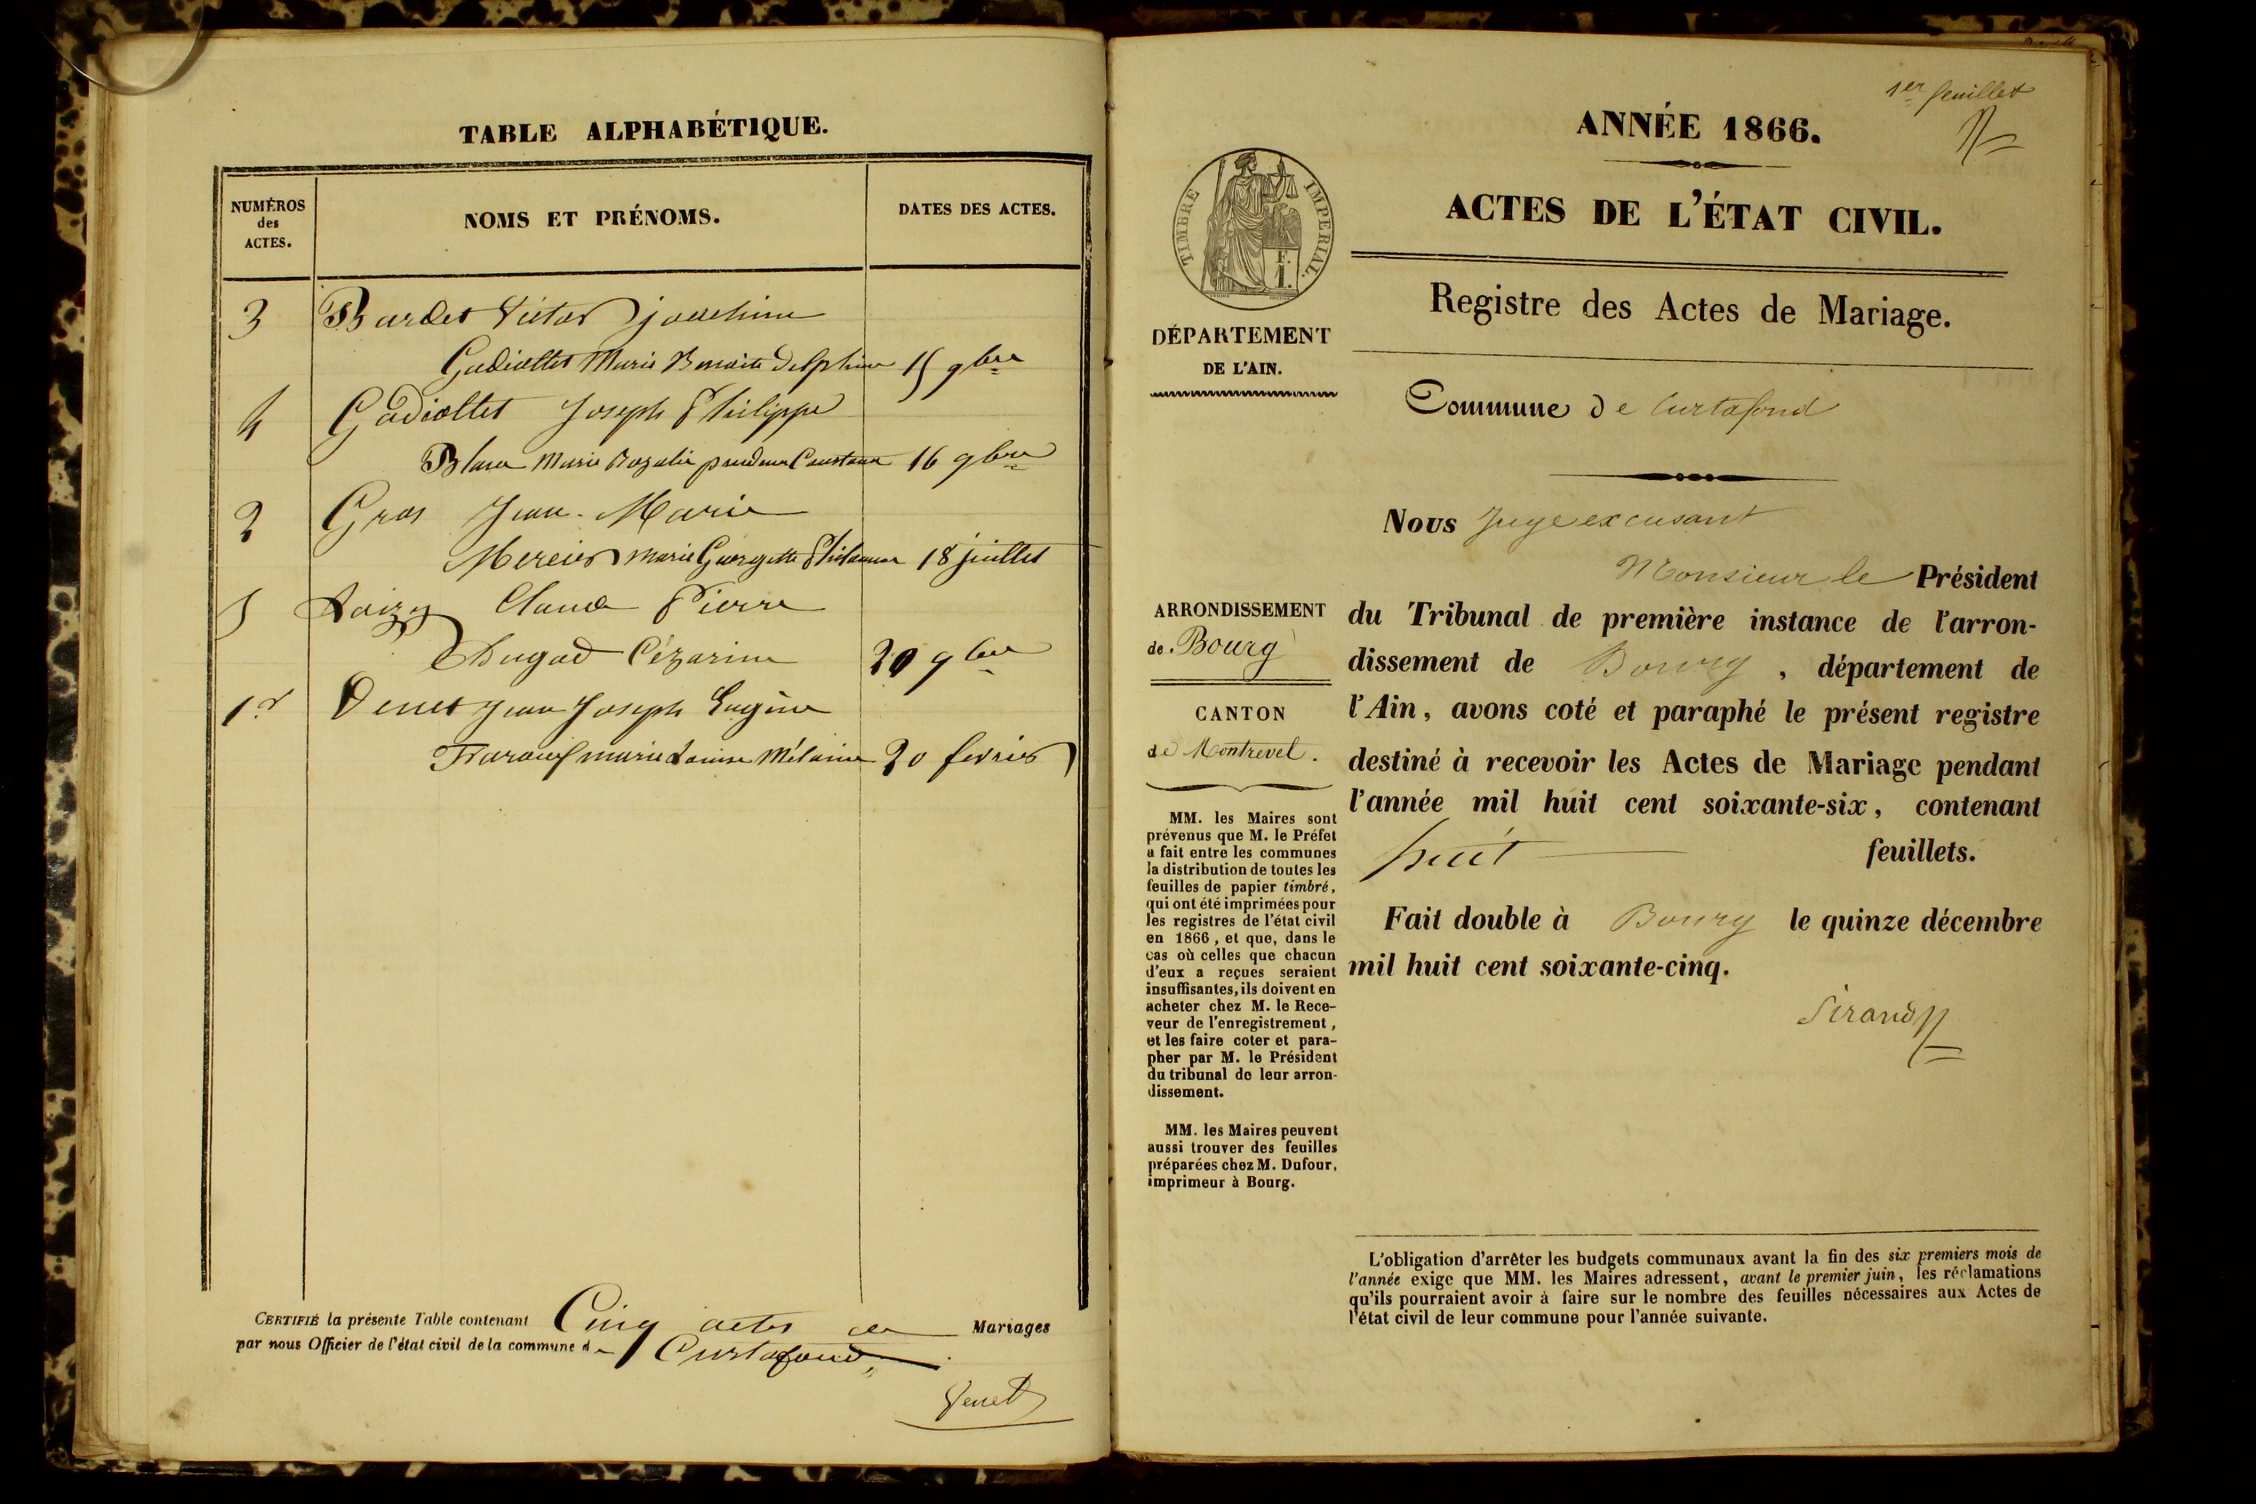 TABLE ALPHABÉTIQUE.
NUMÉROS
des
ACTES.
NOMS ET PRÉNOMS.
DATES DES ACTES.
3 Bardet Victor joachim
Gadiollet Marie Benoite Delphine 15 9bre
4 Gadiollet Joseph Philippe
Blanc Marie Rozalie prudence Constance 16 9bre
2 Gros Jean-Marie
Mercier marie Georgette Philomene 18 juillet
5 Loizy Claude Pierre
Dugad Cézarine 20 9bre
1er Venet Jean Joseph Eugène
marie Louise Mélanie 20 fevrier
CERTIFIÉ la présente Table contenant Cinq actes de Mariages
par nous Officier de l'état civil de la commune de Curtafond
Venet
1er feuillet
ANNÉE 1866.
TIMBRE IMPERIAL.
F.
1.
ACTES DE L'ÉTAT CIVIL.
Registre des Actes de Mariage.
DÉPARTEMENT
DE L'AIN.
Commune de Curtafond
Nous Juge excusant
Monsieur le Président
du Tribunal de première instance de l'arron-
dissement de Bourg, département de
l'Ain, avons coté et paraphé le présent registre
destiné à recevoir les Actes de Mariage pendant
l'année mil huit cent soixante-six, contenant
huit feuillets.
Fait double à Bourg le quinze décembre
mil huit cent soixante-cinq.
Sirand
ARRONDISSEMENT
de Bourg
CANTON
de Montrevel.
MM. les Maires sont
prévenus que M. le Préfet
a fait entre les communes
la distribution de toutes les
feuilles de papier timbré,
qui ont été imprimées pour
les registres de l'état civil
en 1866, et que, dans le
cas où celles que chacun
d'eux a reçues seraient
insuffisantes, ils doivent en
acheter chez M. le Rece-
veur de l'enregistrement,
et les faire coter et para-
pher par M. le Président
du tribunal de leur arron-
dissement.
MM. les Maires peuvent
aussi trouver des feuilles
préparées chez M. Dufour,
imprimeur à Bourg.
L'obligation d'arrêter les budgets communaux avant la fin des six premiers mois de
l'année exige que MM. les Maires adressent, avant le premier juin, les réclamations
qu'ils pourraient avoir à faire sur le nombre des feuilles nécessaires aux Actes de
l'état civil de leur commune pour l'année suivante.